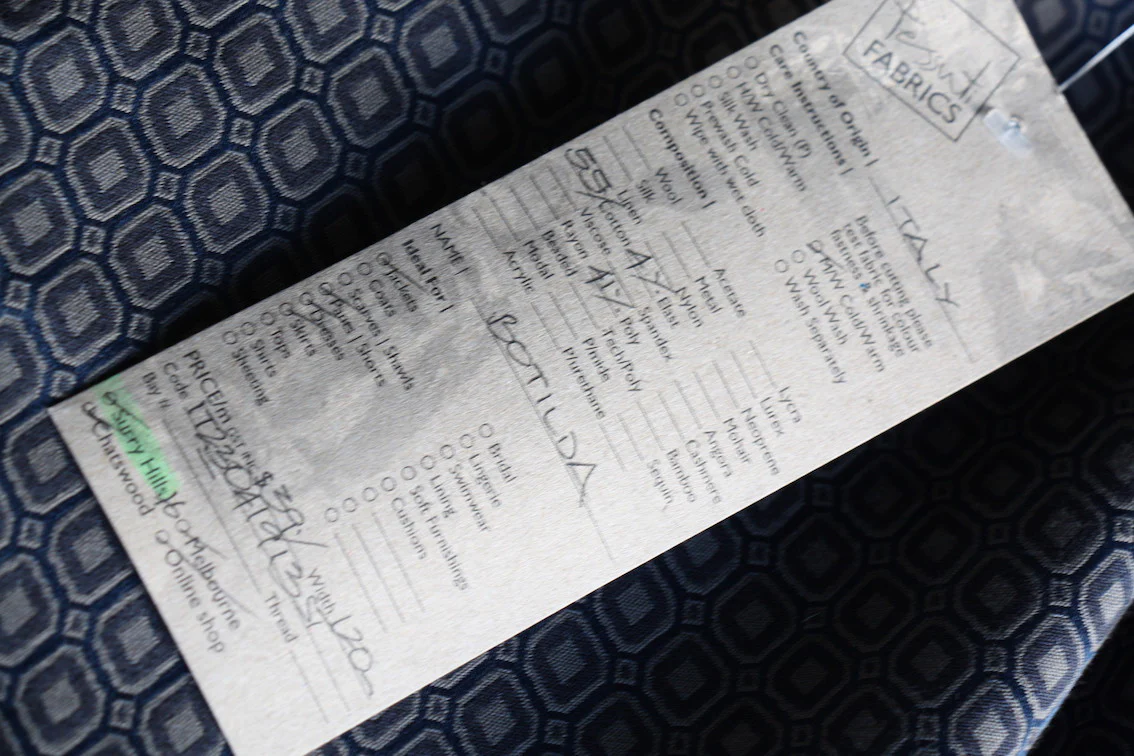 Tessuti
FABRICS
Country of Origin | ITALY
Care Instructions |
Before cutting please
test fabric for colour
fastness & shrinkage
Dry Clean (P)
H/W Cold/Warm
Silk Wash
Prewash Cold
Wipe with wet cloth
D/HW Cold/Warm
Wool Wash
Wash Separately
Composition |
Wool
Silk
Linen
55% Cotton
Viscose
Rayon
Beaded
Modal
Acrylic
Acetate
Metal
Nylon
4% Elast
Spandex
41% Poly
Tech/Poly
P/mide
P/urethane
Lycra
Lurex
Neoprene
Mohair
Angora
Cashmere
Bamboo
Sequin
NAME | BOTILDA
Ideal For |
Jackets
Coats
Scarves | Shawls
Pants | Shorts
Dresses
Skirts
Tops
Shirts
Sheeting
Bridal
Lingerie
Swimwear
Lining
Soft Furnishings
Cushions
PRICE/m $39/ Width 120
Code Thread
Bay #
Surry Hills 16 Melbourne
Chatswood Online shop